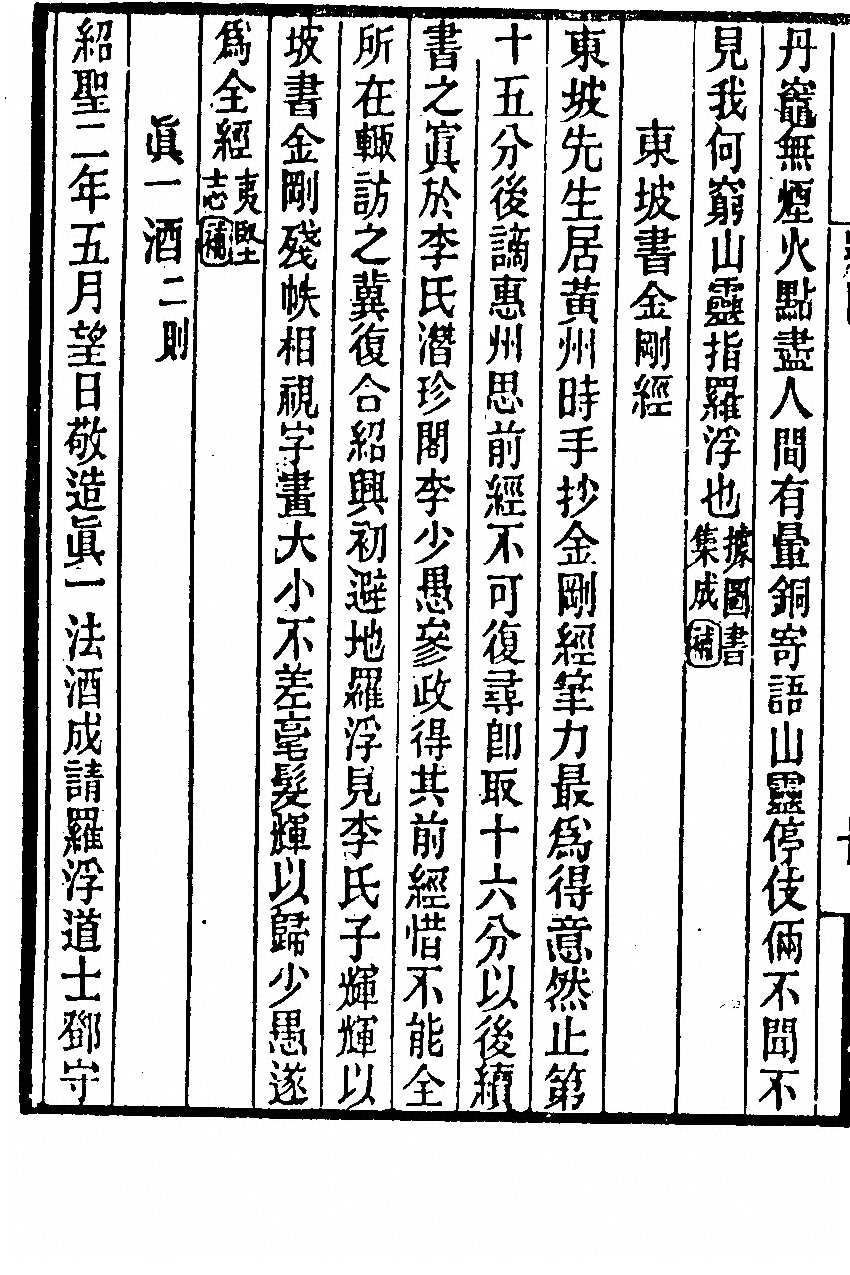 丹竈無煙火點盡人間有暈銅寄語山靈停伎倆不聞不
見我何窮山靈指羅浮也據圖書集成補
東坡書金剛經
東坡先生居黃州時手抄金剛經筆力最爲得意然止第
十五分後謫惠州思前經不可復尋卽取十六分以後續
書之寘於李氏潛珍閣李少愚參政得其前經惜不能全
所在輒訪之冀復合紹興初避地羅浮見李氏子輝輝以
坡書金剛殘帙相視字畫大小不差毫髮輝以歸少愚遂
爲全經夷堅志補
眞一酒二則
紹聖二年五月望日敬造眞一法酒成請羅浮道士鄧守